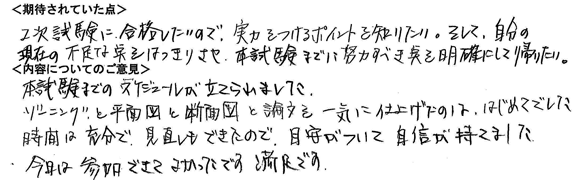 ＜期待されていた点＞
2次試験に、合格したいので、実力をつけるポイントを知りたい。そして、自分の
現在の不足な点をはっきりさせ、本試験までに努力すべき点を明確にして帰りたい。
＜内容についてのご意見＞
本試験までのスケジュールが立てられました。
ゾーニングと平面図と断面図と論文を一気に仕上げたのは、はじめてでした
時間は充分で、見直しもできたので、目安がついて自信が持てました
・今日は参加できてよかったです 満足です。